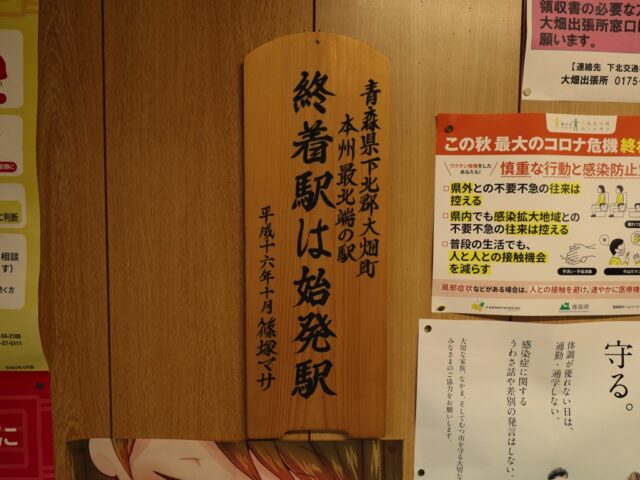 青森県下北郡大畑町
本州最北端の駅
終着駅は始発駅
平成十六年十月 篠塚マサ
領収書の必要な方
大畑出張所窓口
願います。
【連絡先 下北交通
大畑出張所 0175-
この秋 最大のコロナ危機
慎重な行動と感染防止
□県外との不要不急の往来は
控える
□県内でも感染拡大地域との
不要不急の往来は控える
□普段の生活でも、
人と人との接触機会
を減らす
風邪症状などがある場合は、人との接触を避け、速やかに医療機
青森県
守る。
体調が優れない日は、
通勤・通学しない。
感染症に関する
うわさ話や差別の発言はしない。
大切な家族、なかま、そしてむつ市を守る大切な
みなさまのご協力をお願いします。
に判断
相談
34-2108
27-5111
に